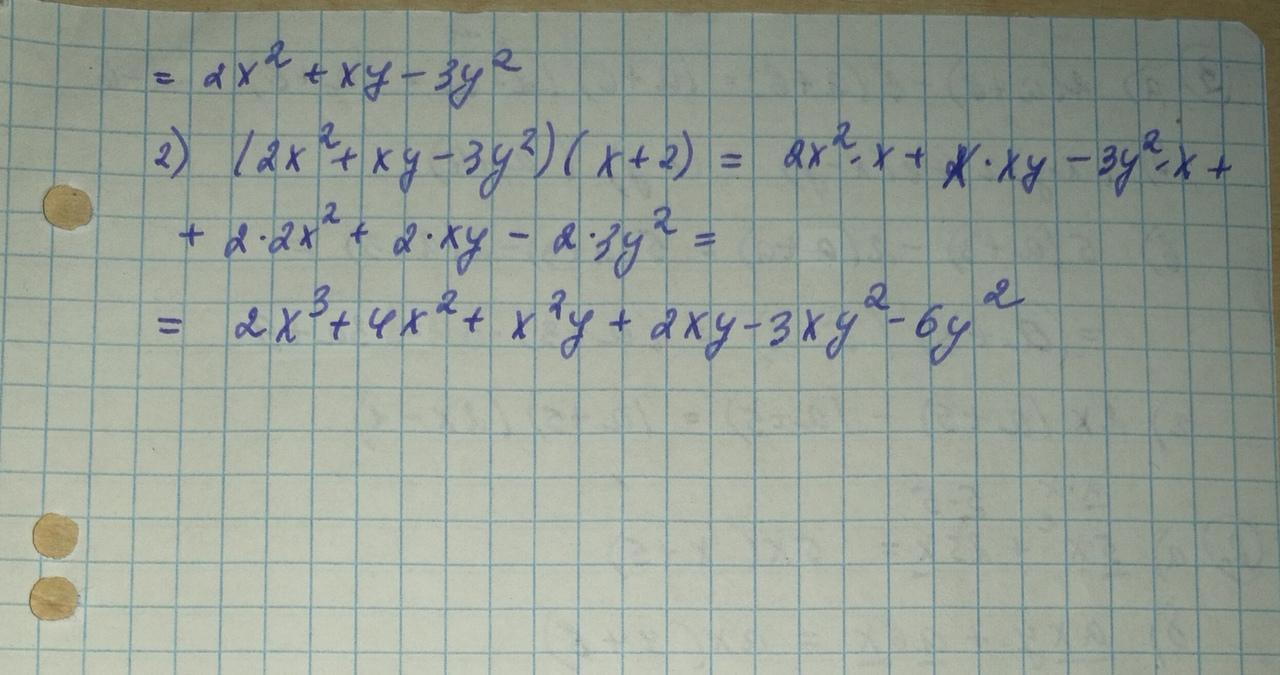 = 2x² + xy - 3y²
2) (2x² + xy - 3y²)(x + 2) = 2x²·x + x·xy - 3y²·x +
+ 2·2x² + 2·xy - 2·3y² =
= 2x³ + 4x² + x²y + 2xy - 3xy² - 6y²